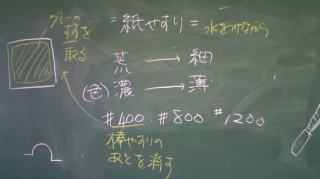 グレーの
すすを
取る
=紙やすり=水をつけながら
荒 → 細
(色)濃 → 薄
#400.#800 #1200
棒やすりの
あとを消す